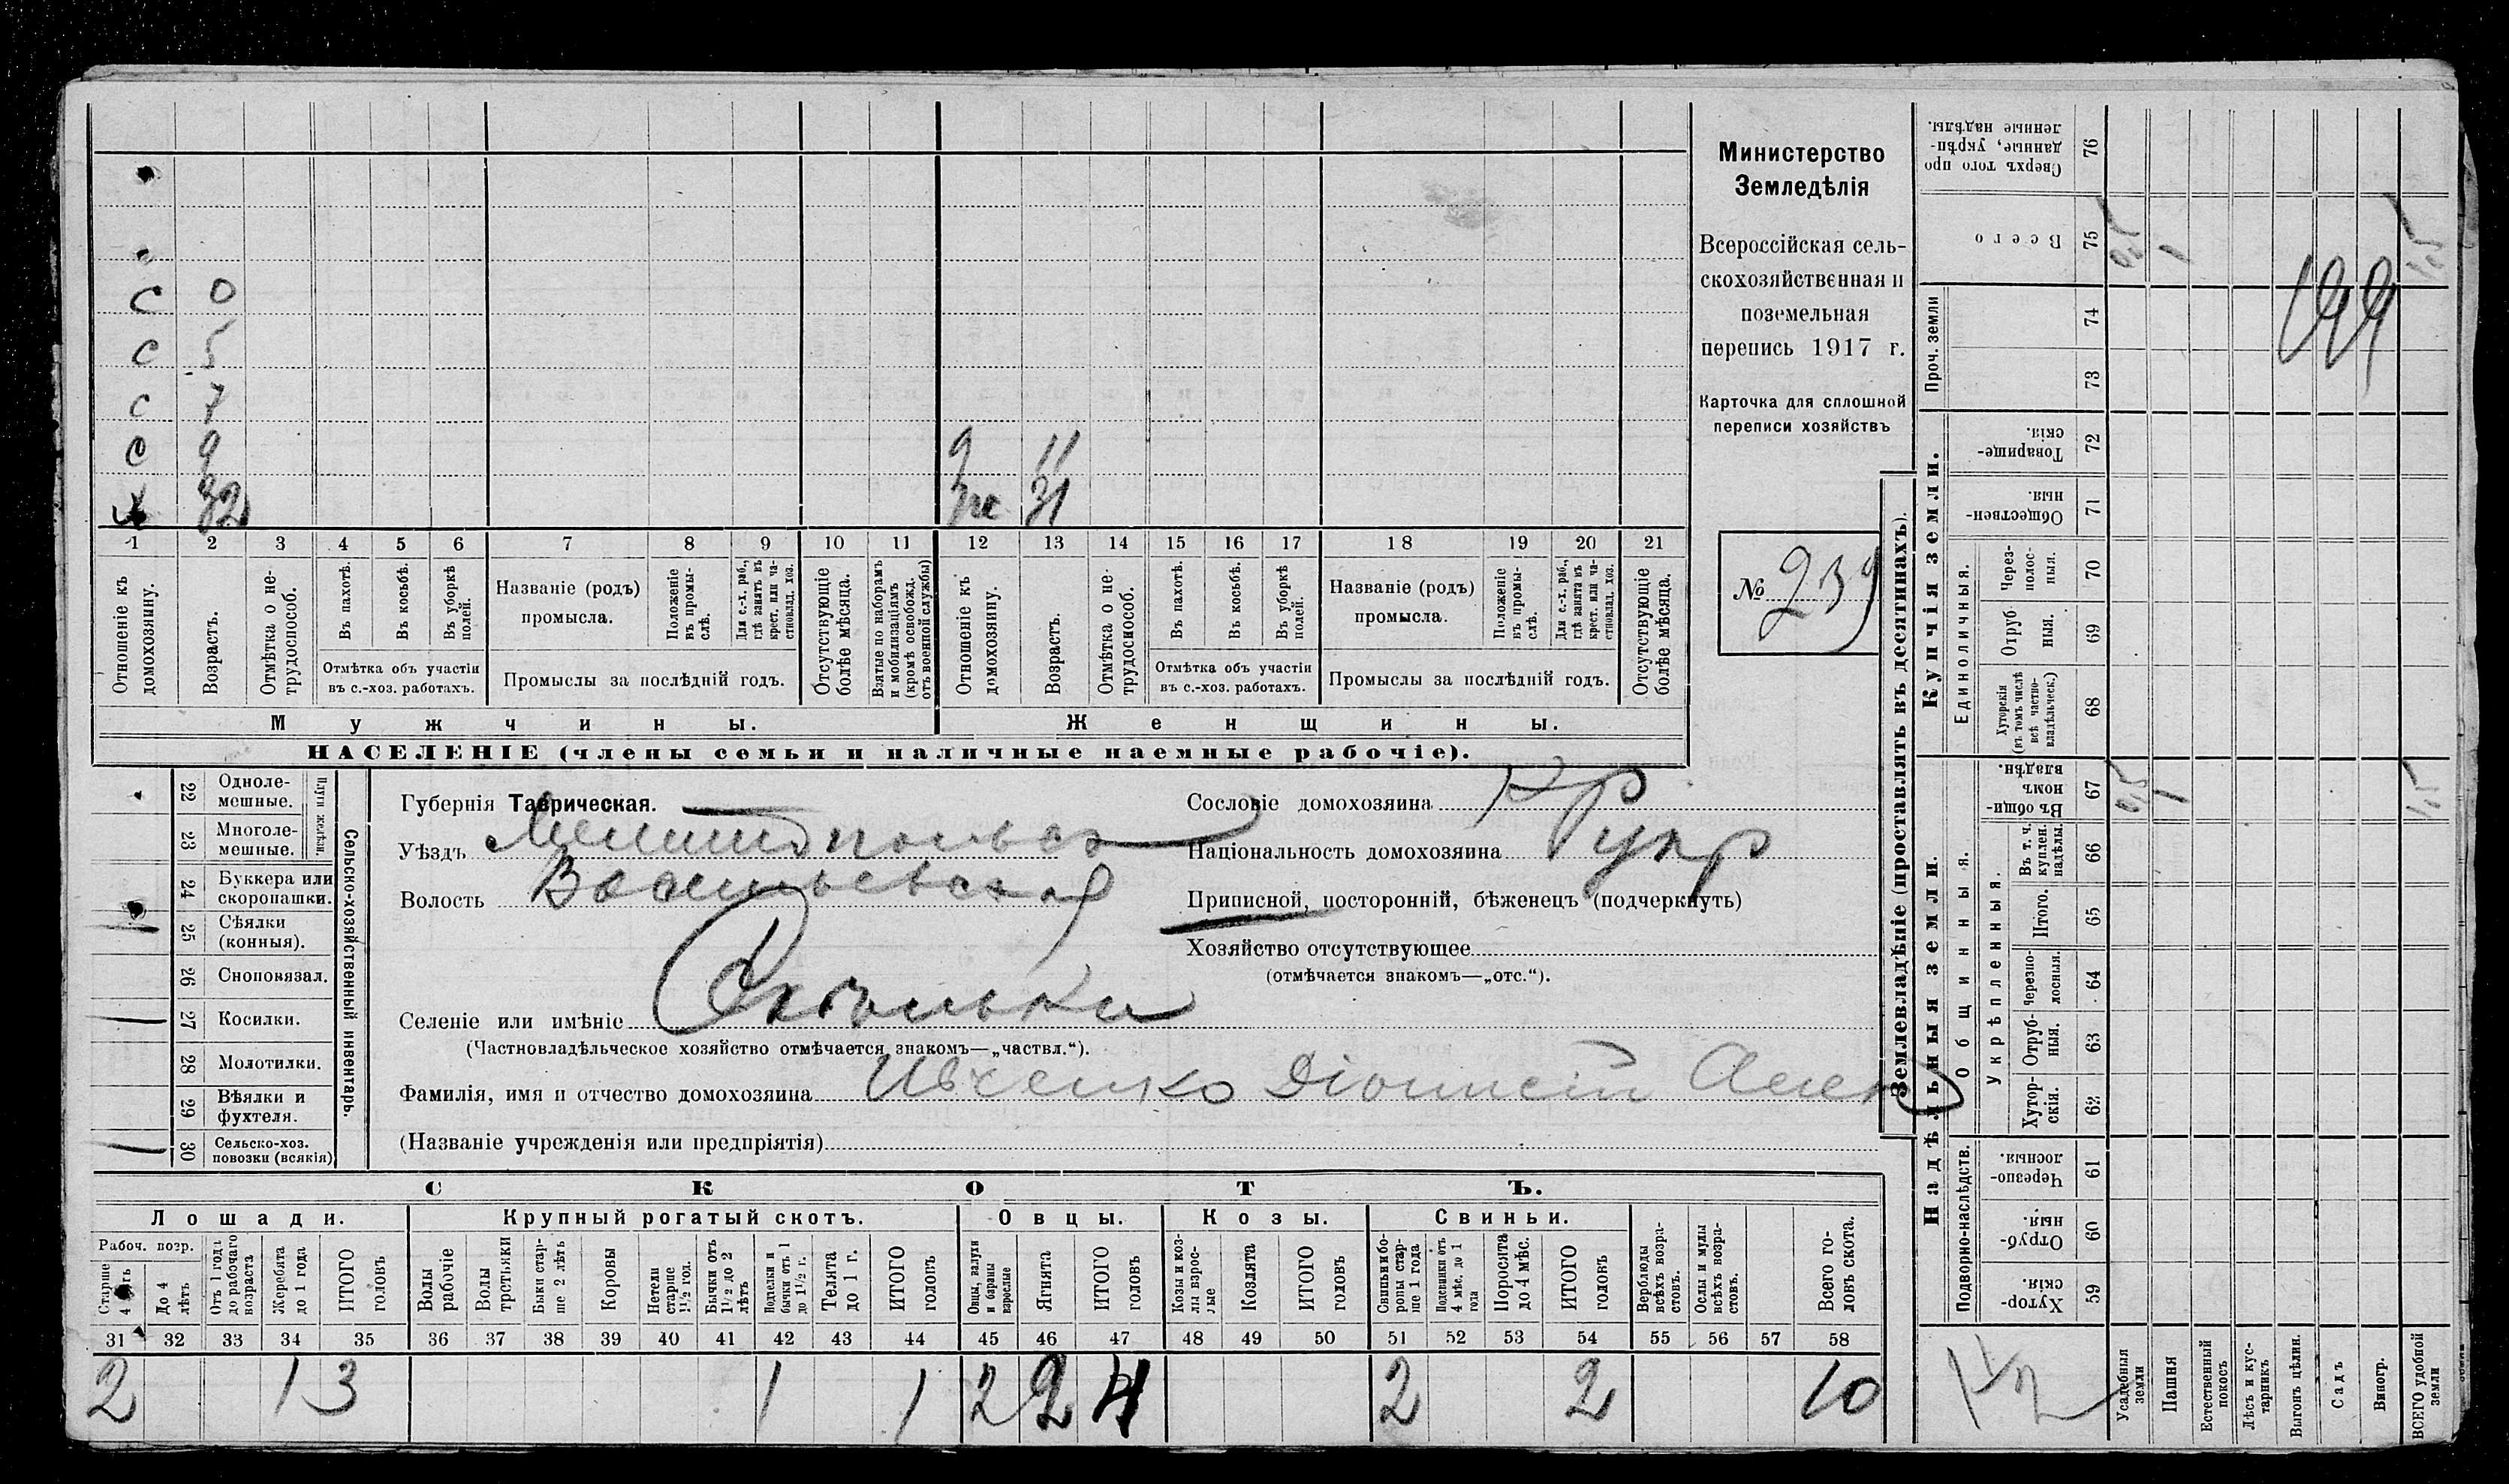 С 0
С 5
С 7
С 9 9 11
Х 32 же 31
1 2 3 4 5 6 7 8 9 10 11 12 13 14 15 16 17 18 19 20 21
Отношеніе къ домохозяину.
Возрастъ.
Отмѣтка о нетрудоспособ.
Въ пахотѣ.
Въ косьбѣ.
Въ уборкѣ полей.
Отмѣтка объ участіи
въ с.-хоз. работахъ.
Названіе (родъ)
промысла.
Положеніе въ промы-
слѣ.
Для с.-х. раб.,
гдѣ занятъ въ
крест. или ча-
стновлад. хоз.
Промыслы за послѣдній годъ.
Отсутствующіе
болѣе мѣсяца.
Взятые по наборамъ
и мобилизаціямъ
(кромѣ освобожд.
отъ военной службы)
Отношеніе къ
домохозяину.
Возрастъ.
Отмѣтка о не-
трудоспособ.
Въ пахотѣ.
Въ косьбѣ.
Въ уборкѣ
полей.
Отмѣтка объ участіи
въ с.-хоз. работахъ.
Названіе (родъ)
промысла.
Положеніе
въ промы-
слѣ.
Для с.-х. раб.,
гдѣ занята въ
крест. или ча-
стновлад. хоз.
Промыслы за послѣдній годъ.
Отсутствующіе
болѣе мѣсяца.
Мужчины.
Женщины.
НАСЕЛЕНІЕ (члены семьи и наличные наемные рабочіе).
Министерство
Земледѣлія
Всероссійская сель-
скохозяйственная и
поземельная
перепись 1917 г.
Карточка для сплошной
переписи хозяйствъ
№ 239
22 Одноле-
мешные.
23 Многоле-
мешные.
Плуги желѣзн.
24 Буккера или
скоропашки.
25 Сѣялки
(конныя).
26 Сноповязал.
27 Косилки.
28 Молотилки.
29 Вѣялки и
фухтеля.
30 Сельско-хоз.
повозки (всякія)
Сельско-хозяйственный инвентарь.
Губернія Таврическая.
Уѣздъ Мелитопольск
Волость Васильевская
Селеніе или имѣніе
(Частновладѣльческое хозяйство отмѣчается знакомъ—„частвл.“).
Фамилія, имя и отчество домохозяина Ивченко Діонисій Алек
(Названіе учрежденія или предпріятія)
Сословіе домохозяина кр
Національность домохозяина укр
Приписной, посторонній, бѣженецъ (подчеркнуть)
Хозяйство отсутствующее
(отмѣчается знакомъ—„отс.“).
СКОТЪ.
Лошади. Крупный рогатый скотъ. Овцы. Козы. Свиньи.
Рабоч. возр.
Старше
4 лѣтъ
До 4
лѣтъ
Отъ 1 года
до рабочаго
возраста
Жеребята
до 1 года
ИТОГО
головъ
Волы
рабочіе
Волы
третьяки
Быки стар-
ше 2 лѣтъ
Коровы
Нетели
старше
1½ год.
Бычки отъ
1½ до 2
лѣтъ
Подтелки и
бычки отъ 1
до 1½ г.
Телята
до 1 г.
ИТОГО
головъ
Овцы, валухи
и бараны
взрослые
Ягнята
ИТОГО
головъ
Козы и коз-
лы взрос-
лые
Козлята
ИТОГО
головъ
Свиньи и бо-
ровы стар-
ше 1 года
Подсвинки отъ
4 мѣс. до 1
года
Поросята
до 4 мѣс.
ИТОГО
головъ
Верблюды
всѣхъ возра-
стовъ.
Ослы и мулы
всѣхъ возра-
стовъ.
Всего го-
ловъ скота.
31 32 33 34 35 36 37 38 39 40 41 42 43 44 45 46 47 48 49 50 51 52 53 54 55 56 57 58
2 1 3 1 1 2 2 4 2 2 10
Землевладѣніе (проставлять въ десятинахъ).
Купчія земли.
Надѣльныя земли.
Сверхъ того про
данные, укрѣп-
ленные надѣлы.
76
Всего
75
0,5 1 1,5
Проч. земли
74
73
199
Товарище-
скія.
72
Обществен-
ныя.
71
Единоличныя.
Через-
полос-
ныя.
70
Отруб-
ныя.
69
Хуторскія
(въ томъ числѣ
всѣ частно-
владѣльческ.)
68
Въ общин-
номъ
владѣн.
67
0,5 1 1,5
Общинныя.
Укрѣпленныя.
Въ т. ч.
куплен.
надѣлы.
66
Итого.
65
Черезпо-
лосныя.
64
Отруб-
ныя.
63
Хутор-
скія.
62
Подворно-наслѣдств.
Черезпо-
лосныя.
61
Отруб-
ныя.
60
Хутор-
скія.
59
Усадебныя
земли
Пашня
Естественный
покосъ
Лѣсъ и кус-
тарникъ
Выгонъ цѣлин.
Садъ
Виногр.
ВСЕГО удобной
земли